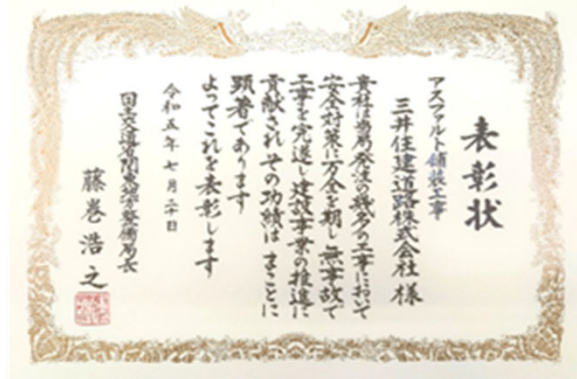 表彰状
アスファルト舗装工事
三井住建道路株式会社 様
貴社は当局発注の幾多の工事において
安全対策に万全を期し 無事故で
工事を完遂し 建設事業の推進に
貢献され その功績は まことに
顕著であります
よってこれを表彰します
令和五年七月二十日
国土交通省関東地方整備局長
藤巻浩之